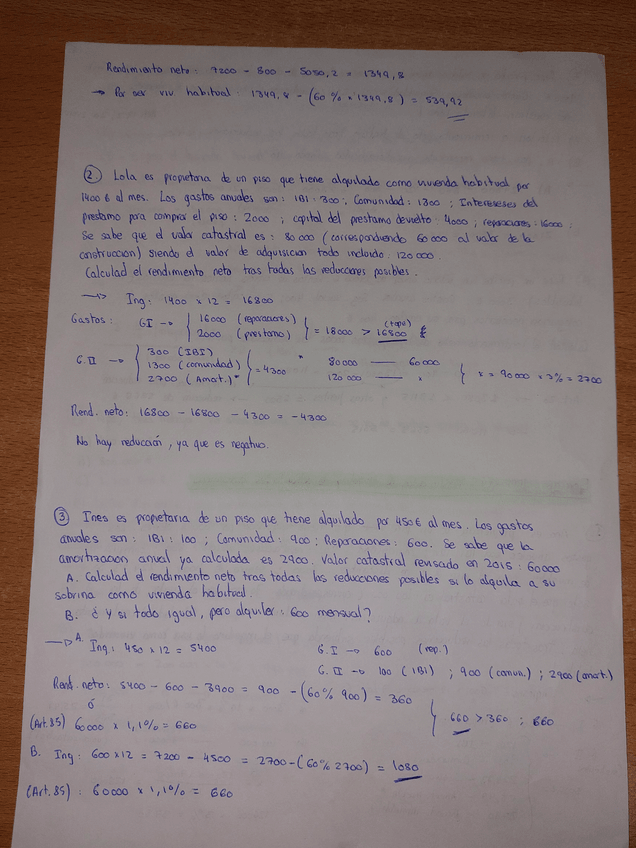 Rendimiento neto: 7200 - 800 - 5050,2 = 1349,8
→ Por ser viv. habitual: 1349,8 - (60% x 1349,8) = 539,92
② Lola es propietaria de un piso que tiene alquilado como vivienda habitual por
1400 € al mes. Los gastos anuales son: IBI: 300; Comunidad: 1300; Intereseses del
prestamo para comprar el piso: 2000; capital del prestamo devuelto: 4000; reparaciones: 16000;
Se sabe que el valor catastral es: 80000 (correspondiendo 60000 al valor de la
construccion) siendo el valor de adquisicion todo incluido: 120000.
Calculad el rendimiento neto tras todas las reducciones posibles.
→ Ing: 1400 x 12 = 16800
Gastos: GI → { 16000 (reparaciones) 2000 (prestamo) } = 18000 > 16800 (tope)
G.II → { 300 (IBI) 1300 (comunidad) 2700 (Amort.)* } = 4300
* 80000 — 60000
120000 — x } x = 90000 x 3% = 2700
Rend. neto: 16800 - 16800 - 4300 = -4300
No hay reducción, ya que es negativo.
③ Ines es propietaria de un piso que tiene alquilado por 450€ al mes. Los gastos
anuales son: IBI: 100; Comunidad: 900; Reparaciones: 600. Se sabe que la
amortizacion anual ya calculada es 2900. Valor catastral revisado en 2015: 60000
A. Calculad el rendimiento neto tras todas las reducciones posibles si lo alquila a su
sobrina como vivienda habitual.
B. ¿Y si todo igual, pero alquiler: 600 mensual?
→ A. Ing: 450 x 12 = 5400
G.I → 600 (rep.)
G.II → 100 (IBI); 900 (comun.); 2900 (amort.)
Rend. neto: 5400 - 600 - 3900 = 900 - (60% 900) = 360
ó
(Art.85) 60000 x 1,1% = 660
} 660 > 360; 660
B. Ing: 600 x 12 = 7200 - 4500 = 2700 - (60% 2700) = 1080
(Art. 85): 60000 x 1,1% = 660